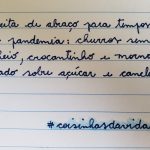 eita de abraço para tempos
pandemia: churros sem
heio, crocantinho e morno
ado sobre açúcar e canela
#coisinhasdavida